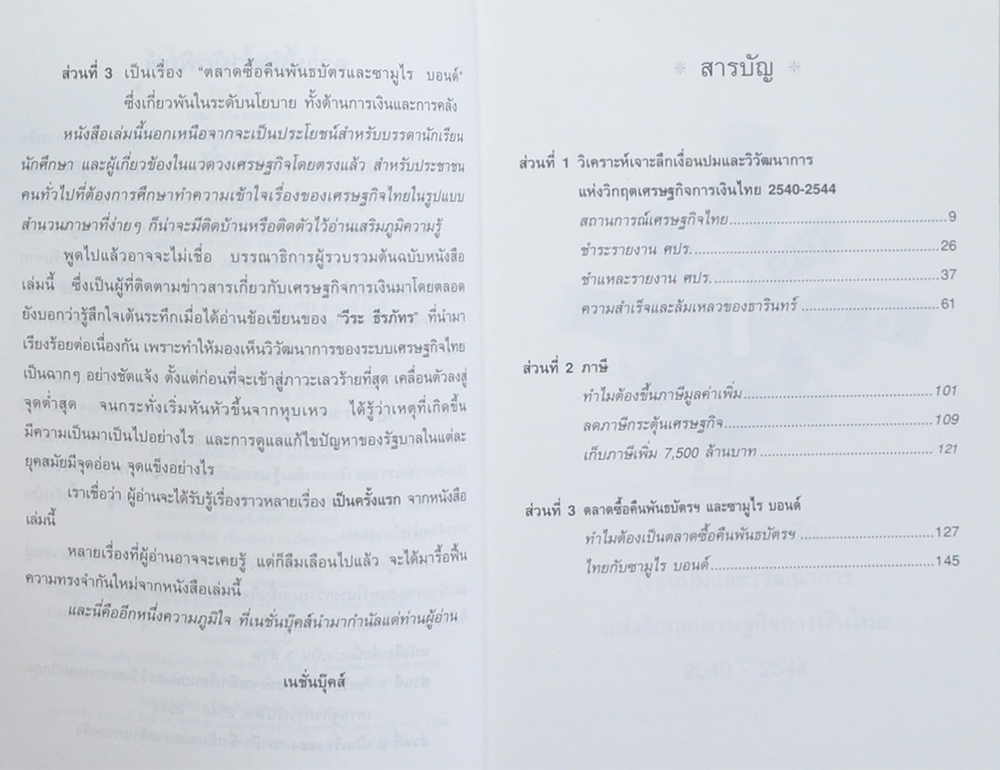 ส่วนที่ 3 เป็นเรื่อง "ตลาดซื้อคืนพันธบัตรและซามูไร บอนด์"
ซึ่งเกี่ยวพันในระดับนโยบาย ทั้งด้านการเงินและการคลัง
หนังสือเล่มนี้นอกเหนือจากจะเป็นประโยชน์สำหรับบรรดานักเรียน
นักศึกษา และผู้เกี่ยวข้องในแวดวงเศรษฐกิจโดยตรงแล้ว สำหรับประชาชน
คนทั่วไปที่ต้องการศึกษาทำความเข้าใจเรื่องของเศรษฐกิจไทยในรูปแบบ
สำนวนภาษาที่ง่ายๆ ก็น่าจะมีติดบ้านหรือติดตัวไว้อ่านเสริมภูมิความรู้
พูดไปแล้วอาจจะไม่เชื่อ บรรณาธิการผู้รวบรวมต้นฉบับหนังสือ
เล่มนี้ ซึ่งเป็นผู้ที่ติดตามข่าวสารเกี่ยวกับเศรษฐกิจการเงินมาโดยตลอด
ยังบอกว่ารู้สึกใจเต้นระทึกเมื่อได้อ่านข้อเขียนของ "วีระ ธีรภัทร" ที่นำมา
เรียงร้อยต่อเนื่องกัน เพราะทำให้มองเห็นวิวัฒนาการของระบบเศรษฐกิจไทย
เป็นฉากๆ อย่างชัดแจ้ง ตั้งแต่ก่อนที่จะเข้าสู่ภาวะเลวร้ายที่สุด เคลื่อนตัวลงสู่
จุดต่ำสุด จนกระทั่งเริ่มหันหัวขึ้นจากหุบเหว ได้รู้ว่าเหตุที่เกิดขึ้น
มีความเป็นมาเป็นไปอย่างไร และการดูแลแก้ไขปัญหาของรัฐบาลในแต่ละ
ยุคสมัยมีจุดอ่อน จุดแข็งอย่างไร
เราเชื่อว่า ผู้อ่านจะได้รับรู้เรื่องราวหลายเรื่อง เป็นครั้งแรก จากหนังสือ
เล่มนี้
หลายเรื่องที่ผู้อ่านอาจจะเคยรู้ แต่ก็ลืมเลือนไปแล้ว จะได้มารื้อฟื้น
ความทรงจำกันใหม่จากหนังสือเล่มนี้
และนี่คืออีกหนึ่งความภูมิใจ ที่เนชั่นบุ๊คส์นำมากำนัลแด่ท่านผู้อ่าน
เนชั่นบุ๊คส์
สารบัญ
ส่วนที่ 1 วิเคราะห์เจาะลึกเงื่อนปมและวิวัฒนาการ
แห่งวิกฤตเศรษฐกิจการเงินไทย 2540-2544
สถานการณ์เศรษฐกิจไทย..........9
ชำระรายงาน ศปร...........26
ชำแหละรายงาน ศปร...........37
ความสำเร็จและล้มเหลวของธารินทร์..........61
ส่วนที่ 2 ภาษี
ทำไมต้องขึ้นภาษีมูลค่าเพิ่ม..........101
ลดภาษีกระตุ้นเศรษฐกิจ..........109
เก็บภาษีเพิ่ม 7,500 ล้านบาท..........121
ส่วนที่ 3 ตลาดซื้อคืนพันธบัตรฯ และซามูไร บอนด์
ทำไมต้องเป็นตลาดซื้อคืนพันธบัตรฯ..........127
ไทยกับซามูไร บอนด์..........145